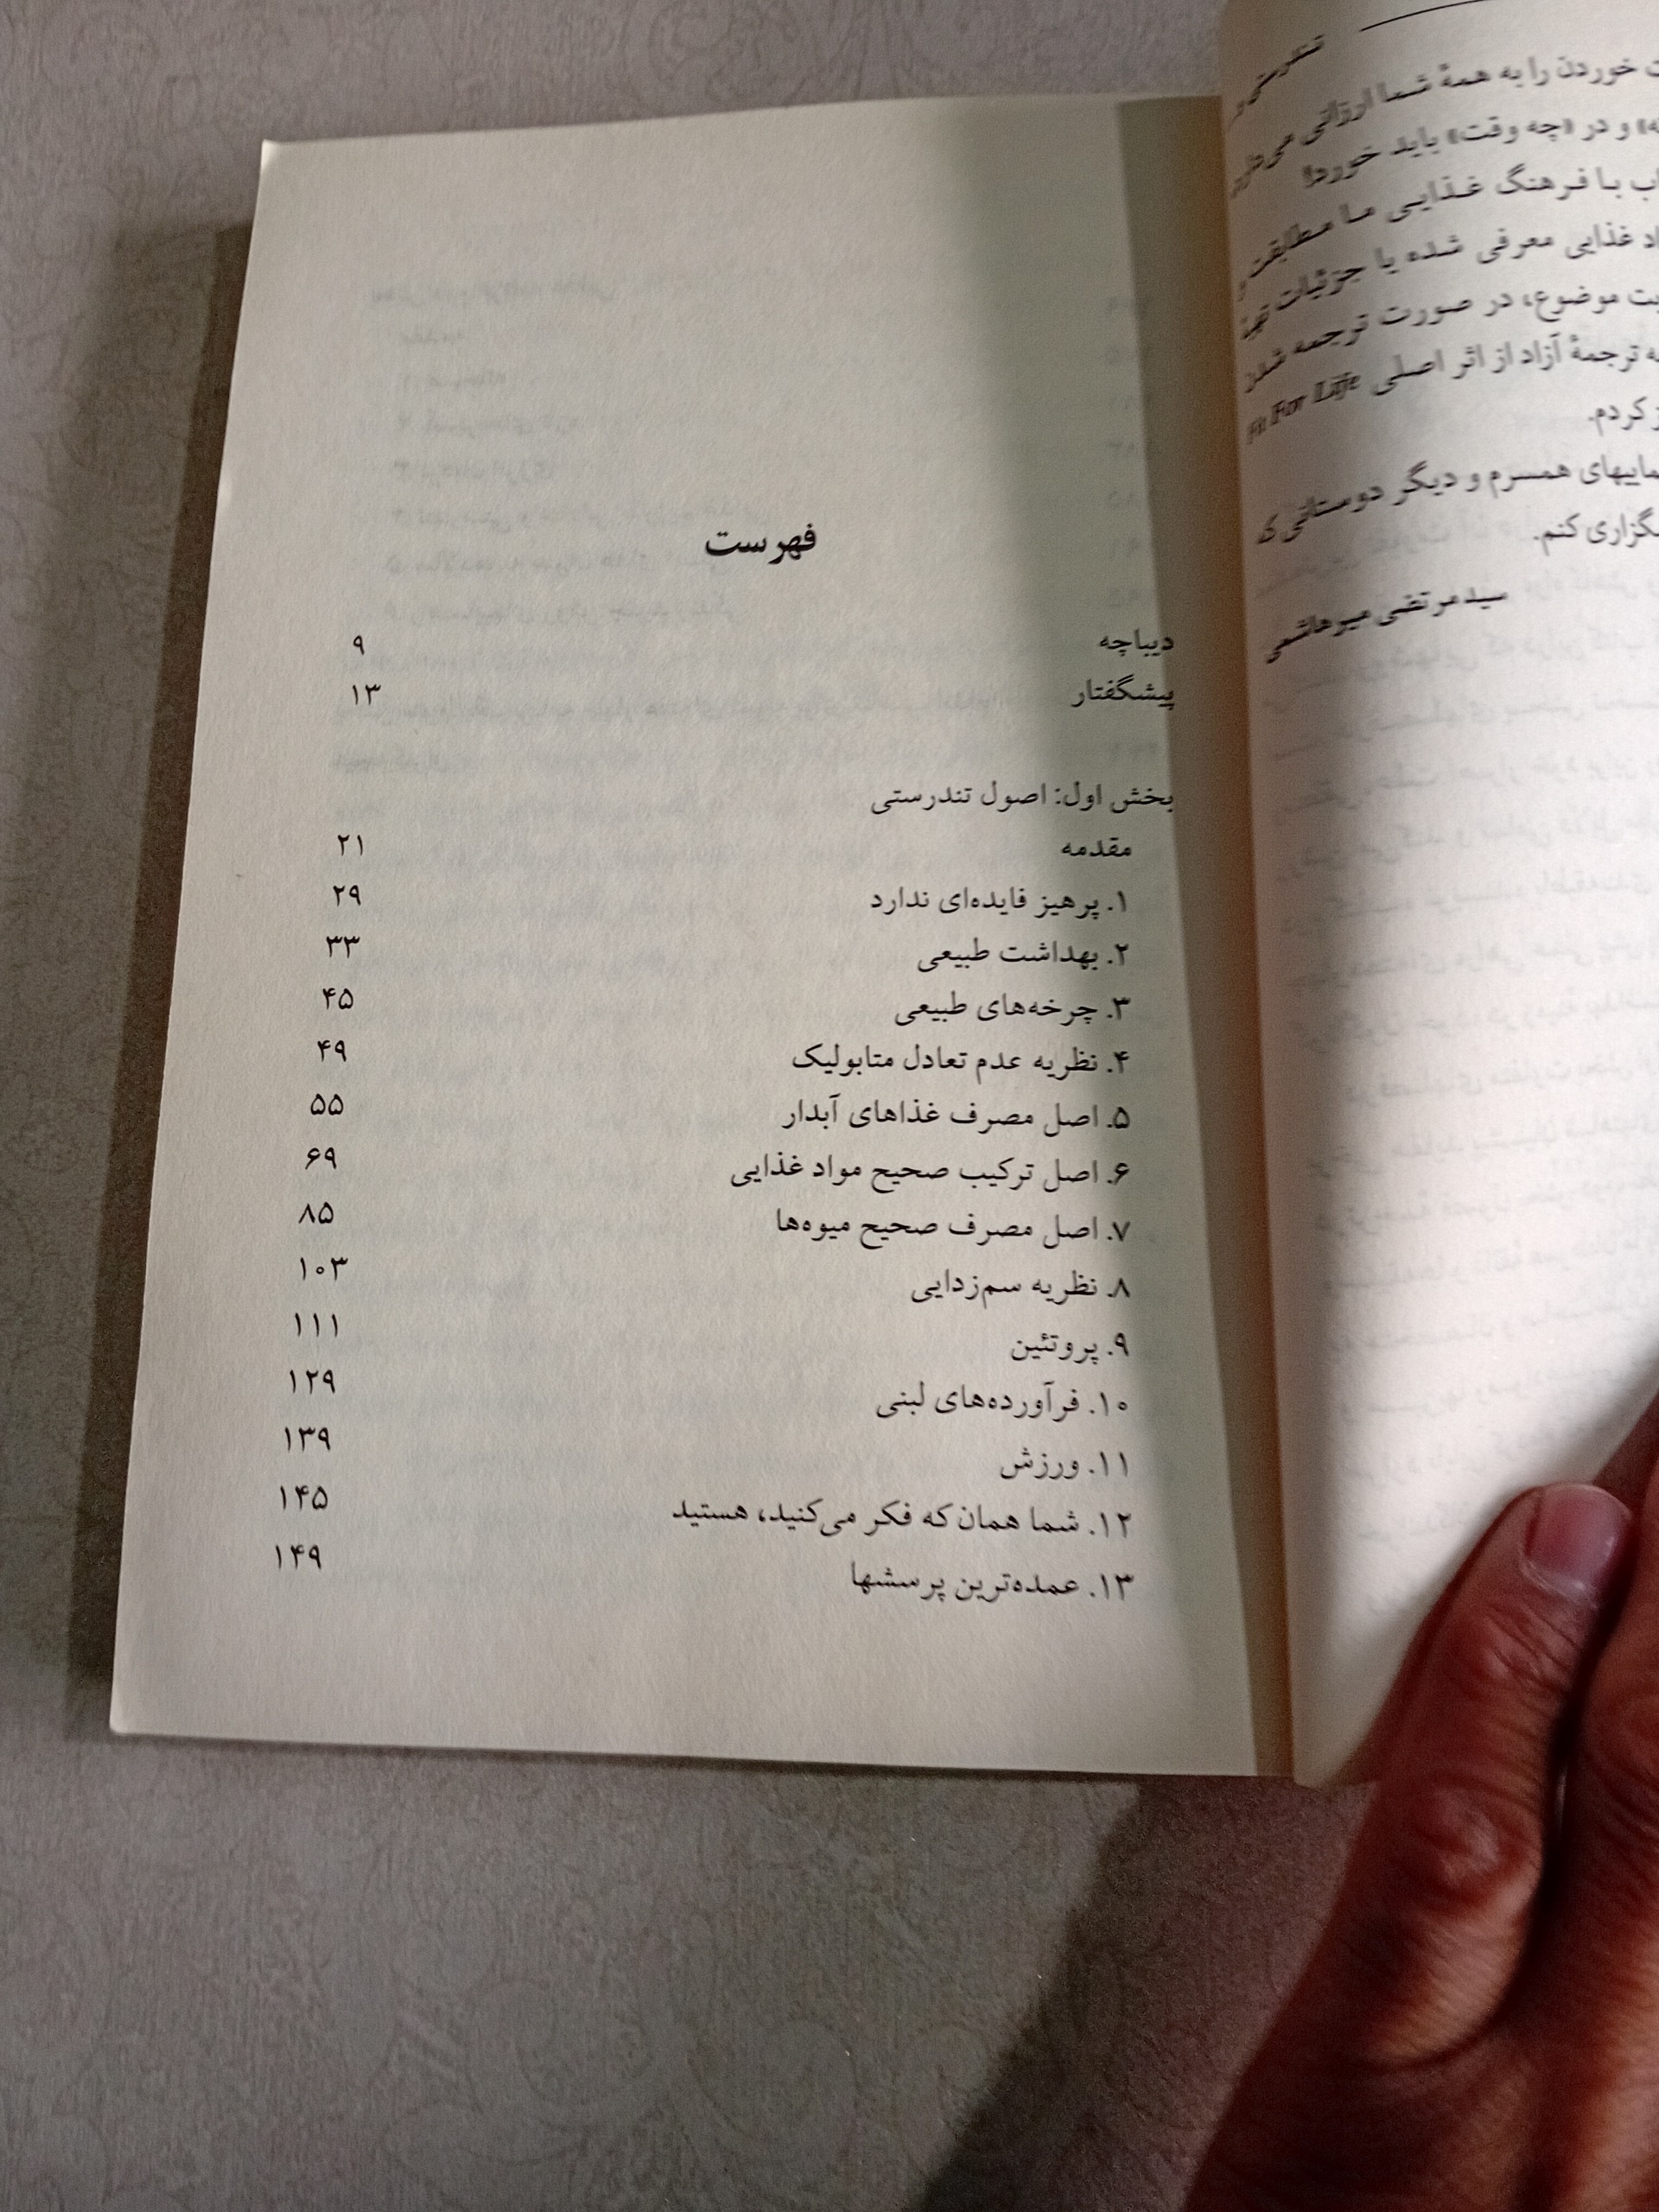 تندرستی و
خوردن را به همهٔ شما ارزانی می‌دارد
و در «چه وقت» باید خورد!
با فرهنگ غذایی ما مطابقت
غذایی معرفی شده یا جزئیات تهیهٔ
موضوع، در صورت ترجمه شدن
ترجمهٔ آزاد از اثر اصلی Fit For Life
کردم.
همسرم و دیگر دوستانی که
کنم.
سیدمرتضی میرهاشمی
فهرست
دیباچه ۹
پیشگفتار ۱۳
بخش اول: اصول تندرستی
مقدمه ۲۱
۱. پرهیز فایده‌ای ندارد ۲۹
۲. بهداشت طبیعی ۳۳
۳. چرخه‌های طبیعی ۴۵
۴. نظریه عدم تعادل متابولیک ۴۹
۵. اصل مصرف غذاهای آبدار ۵۵
۶. اصل ترکیب صحیح مواد غذایی ۶۹
۷. اصل مصرف صحیح میوه‌ها ۸۵
۸. نظریه سم‌زدایی ۱۰۳
۹. پروتئین ۱۱۱
۱۰. فرآورده‌های لبنی ۱۲۹
۱۱. ورزش ۱۳۹
۱۲. شما همان‌که فکر می‌کنید، هستید ۱۴۵
۱۳. عمده‌ترین پرسشها ۱۴۹